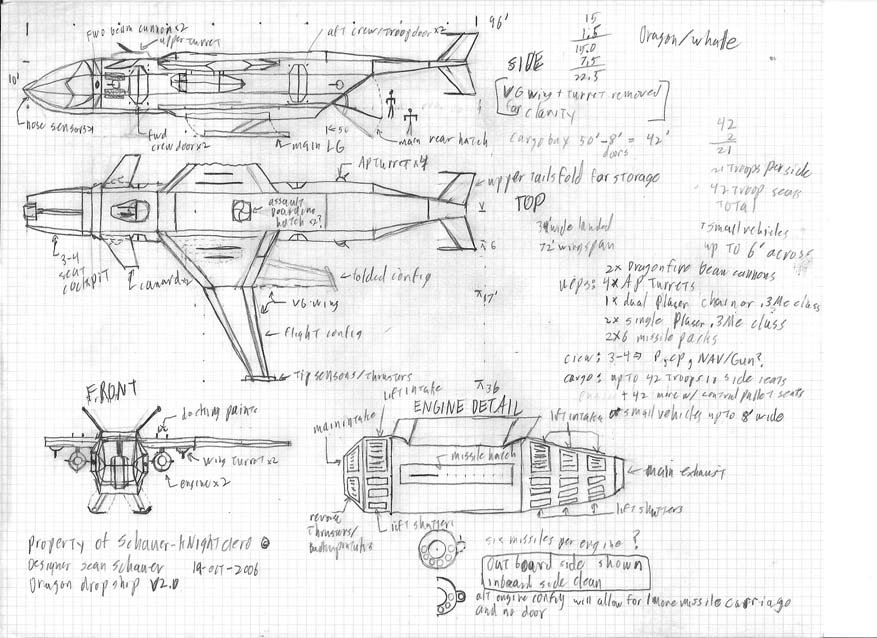 96'
fwd beam cannon x2
upper turret
aft crew/troop door x2
15
1.5
15.0
7.5
22.5
Dragon/whale
SIDE
10'
VG wing + turret removed
for clarity
cargo bay 50'-8' = 42'
doors
42
2
21
nose sensors
fwd
crew door x2
main LG
main rear hatch
AP turret x4
upper tails fold for storage
21 troops per side
42 troop seats
total
TOP
assault
boarding
hatch x2?
wide landed
72' wingspan
small vehicles
up to 6' across
3-4
seat
cockpit
canard x2
folded config
VG wing
flight config
17'
2x Dragonfire beam cannons
weps: 4x AP Turrets
1x dual Plaser chain or .3Me class
2x single Plaser .3Me class
2x6 missile packs
crew: 3-4 P, CP, NAV/Gun?
cargo: up to 42 troops in side seats
+ 42 more w/ central pallet seats
or small vehicles up to 8' wide
Tip sensors/thrusters
36
FRONT
lift intake
ENGINE DETAIL
lift intakes
docking points
main intake
missile hatch
wing turret x2
engine x2
main exhaust
reverse
thrusters/
lift shutters
lift shutters
six missiles per engine?
Outboard side shown
inboard side clean
alt engine config will allow for 1 more missile carriage
and no door
Property of Schauer-Knightclero
Designer Sean Schauer 19-OCT-2006
Dragon dropship V2.0